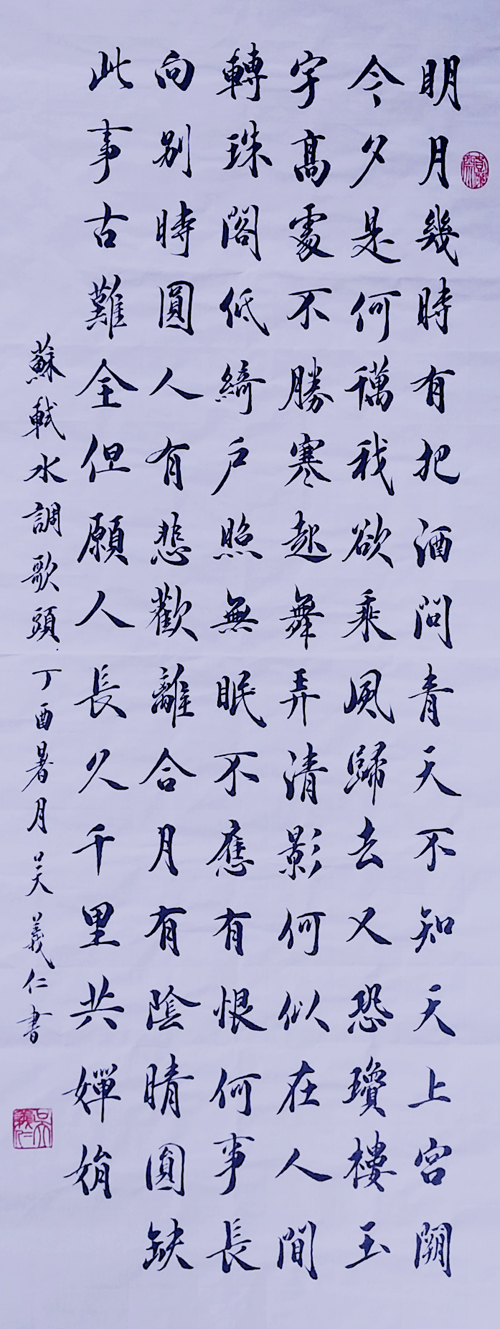 明月幾時有把酒問青天不知天上宮闕
今夕是何我欲乘風歸去又恐瓊樓玉
宇高處不勝寒起舞弄清影何似在人間
轉珠閣低綺戶照無眠不應有恨何事長
向別時圓人有悲歡離合月有陰晴圓缺
此事古難全但願人長久千里共嬋娟
蘇軾水調歌頭 丁酉暑月吳義仁書
吳義仁